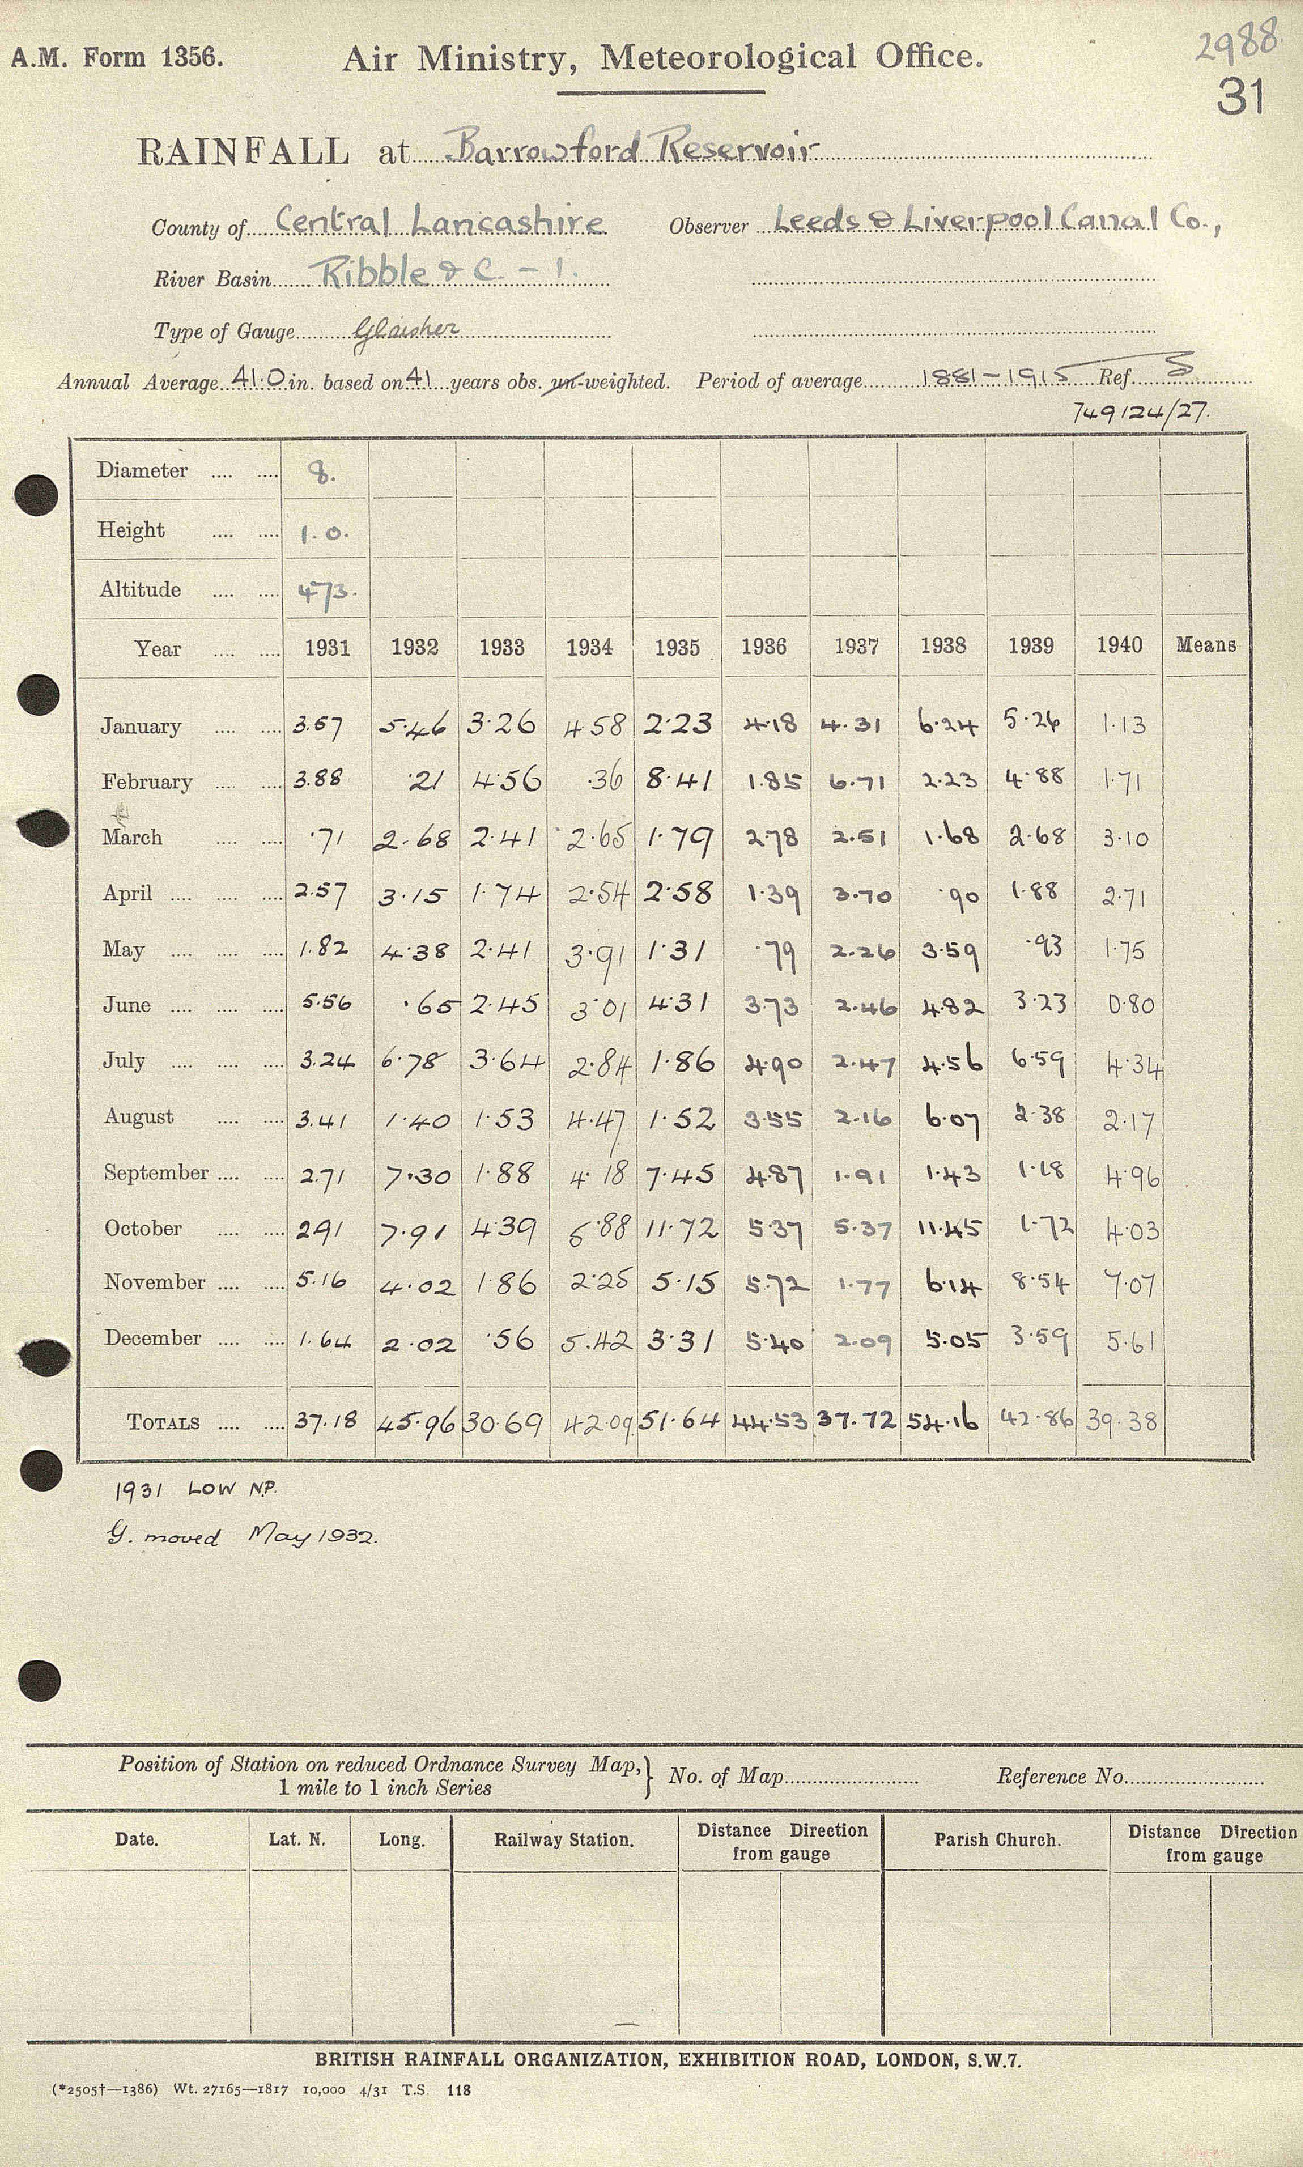 2988
A.M. Form 1356. Air Ministry, Meteorological Office.
31
RAINFALL at Barrowford Reservoir
County of Central Lancashire Observer Leeds & Liverpool Canal Co.,
River Basin Ribble & C. - 1.
Type of Gauge Glaisher
Annual Average 41.0 in. based on 41 years obs. un-weighted. Period of average 1881-1915 Ref. S
749124/27.
Diameter 8.
Height 1.0.
Altitude 473.
Year 1931 1932 1933 1934 1935 1936 1937 1938 1939 1940 Means
January 3.57 5.46 3.26 4.58 2.23 4.18 4.31 6.24 5.26 1.13
February 3.88 .21 4.56 .36 8.41 1.85 6.71 2.23 4.88 1.71
March .71 2.68 2.41 2.65 1.79 2.78 2.51 1.68 2.68 3.10
April 2.57 3.15 1.74 2.54 2.58 1.39 3.70 .90 1.88 2.71
May 1.82 4.38 2.41 3.91 1.31 .79 2.26 3.59 .93 1.75
June 5.56 .65 2.45 3.01 4.31 3.73 2.46 4.82 3.23 0.80
July 3.24 6.78 3.64 2.84 1.86 4.90 2.47 4.56 6.59 4.34
August 3.41 1.40 1.53 4.47 1.52 3.55 2.16 6.07 2.38 2.17
September 2.71 7.30 1.88 4.18 7.45 4.87 1.91 1.43 1.18 4.96
October 2.91 7.91 4.39 6.88 11.72 5.37 5.37 11.45 1.72 4.03
November 5.16 4.02 1.86 2.25 5.15 5.72 1.77 6.14 8.54 7.07
December 1.64 2.02 .56 5.42 3.31 5.40 2.09 5.05 3.59 5.61
TOTALS 37.18 45.96 30.69 42.09 51.64 44.53 37.72 54.16 42.86 39.38
1931 LOW N.P.
G. moved May 1932.
Position of Station on reduced Ordnance Survey Map, } No. of Map Reference No.
1 mile to 1 inch Series
Date. Lat. N. Long. Railway Station. Distance Direction from gauge Parish Church. Distance Direction from gauge
BRITISH RAINFALL ORGANIZATION, EXHIBITION ROAD, LONDON, S.W.7.
(*2505†—1386) Wt. 27165—1817 10,000 4/31 T.S. 118